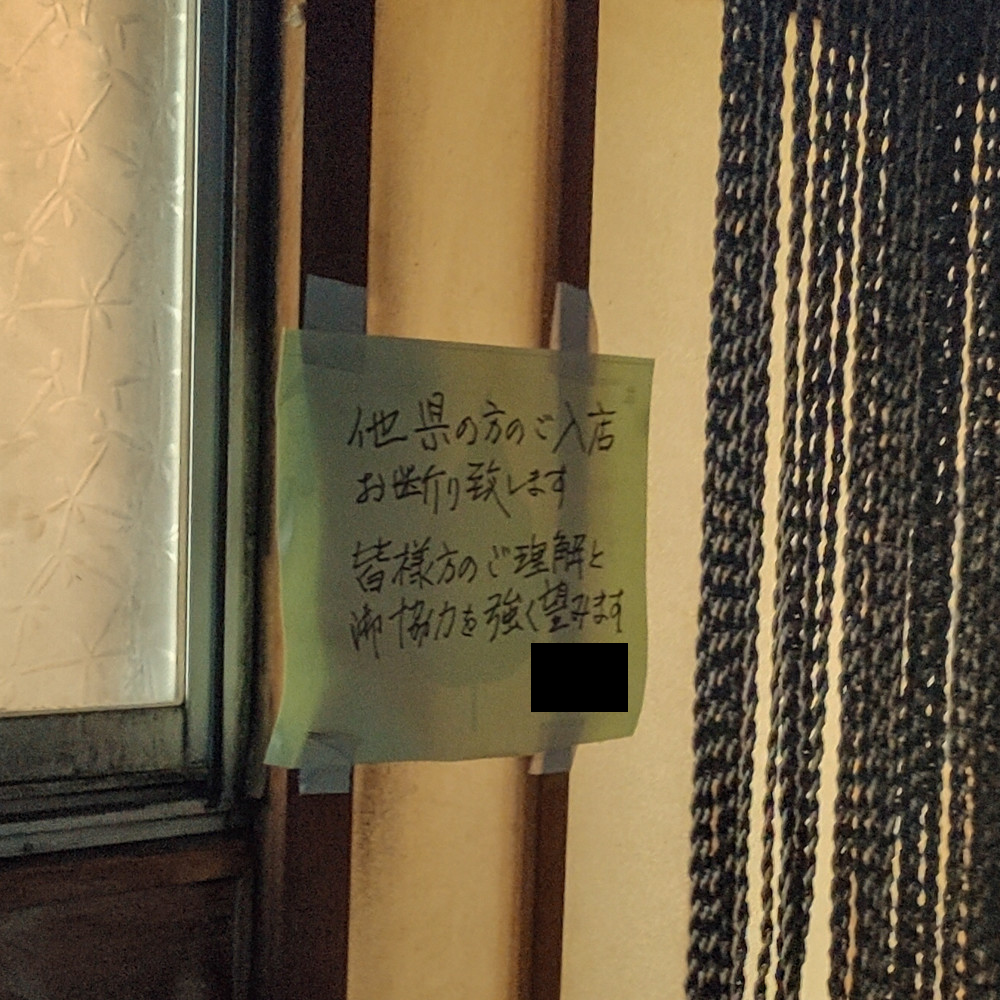 他県の方のご入店
お断り致します
皆様方のご理解と
御協力を強く望みます